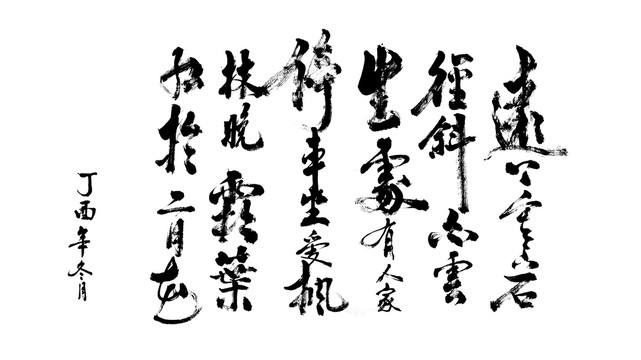 遠上寒山石
徑斜白雲
生處有人家
停車坐愛楓
林晚霜葉
紅於二月花
丁酉年冬月